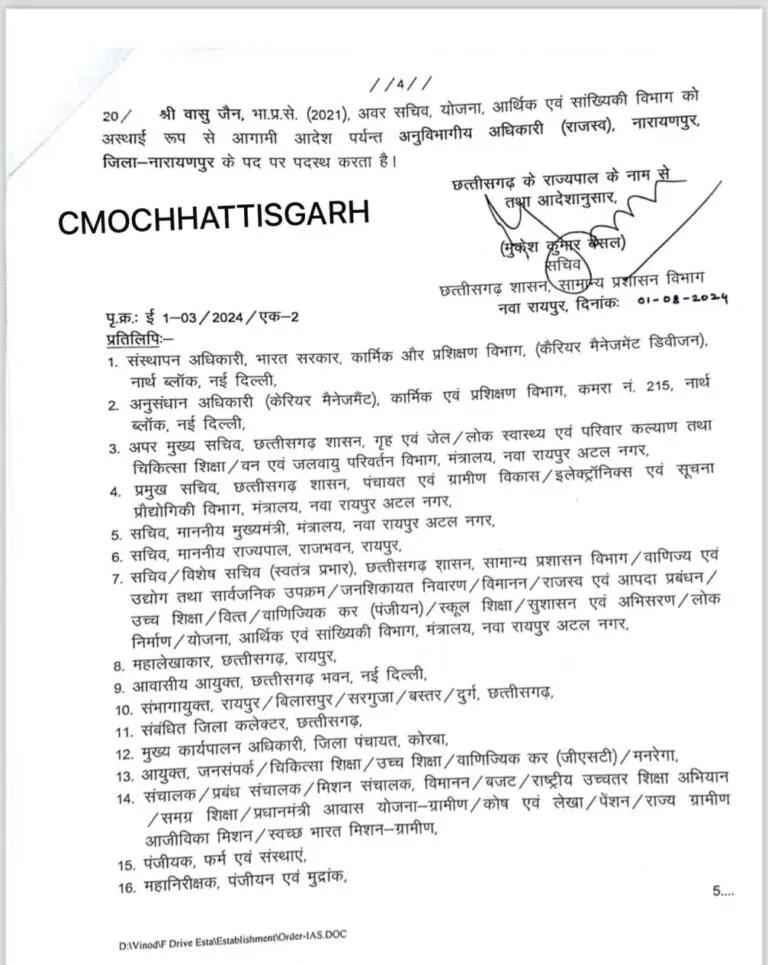 //4//
20/ श्री वासु जैन, भा.प्र.से. (2021), अवर सचिव, योजना, आर्थिक एवं सांख्यिकी विभाग को
अस्थाई रूप से आगामी आदेश पर्यन्त अनुविभागीय अधिकारी (राजस्व), नारायणपुर,
जिला–नारायणपुर के पद पर पदस्थ करता है।
छत्तीसगढ़ के राज्यपाल के नाम से
तथा आदेशानुसार,
CMOCHHATTISGARH
(मुकेश कुमार बंसल)
सचिव
छत्तीसगढ़ शासन, सामान्य प्रशासन विभाग
नवा रायपुर, दिनांकः 01-08-2024
पृ.क्र.: ई 1–03/2024/एक–2
प्रतिलिपिः–
1. संस्थापन अधिकारी, भारत सरकार, कार्मिक और प्रशिक्षण विभाग, (कैरियर मैनेजमेंट डिवीजन),
नार्थ ब्लॉक, नई दिल्ली,
2. अनुसंधान अधिकारी (केरियर मैनेजमैंट), कार्मिक एवं प्रशिक्षण विभाग, कमरा नं. 215, नार्थ
ब्लॉक, नई दिल्ली,
3. अपर मुख्य सचिव, छत्तीसगढ़ शासन, गृह एवं जेल/लोक स्वास्थ्य एवं परिवार कल्याण तथा
चिकित्सा शिक्षा/वन एवं जलवायु परिवर्तन विभाग, मंत्रालय, नवा रायपुर अटल नगर,
4. प्रमुख सचिव, छत्तीसगढ़ शासन, पंचायत एवं ग्रामीण विकास/इलेक्ट्रॉनिक्स एवं सूचना
प्रौद्योगिकी विभाग, मंत्रालय, नवा रायपुर अटल नगर,
5. सचिव, माननीय मुख्यमंत्री, मंत्रालय, नवा रायपुर अटल नगर,
6. सचिव, माननीय राज्यपाल, राजभवन, रायपुर,
7. सचिव/विशेष सचिव (स्वतंत्र प्रभार), छत्तीसगढ़ शासन, सामान्य प्रशासन विभाग/वाणिज्य एवं
उद्योग तथा सार्वजनिक उपक्रम/जनशिकायत निवारण/विमानन/राजस्व एवं आपदा प्रबंधन/
उच्च शिक्षा/वित्त/वाणिज्यिक कर (पंजीयन)/स्कूल शिक्षा/सुशासन एवं अभिसरण/लोक
निर्माण/योजना, आर्थिक एवं सांख्यिकी विभाग, मंत्रालय, नवा रायपुर अटल नगर,
8. महालेखाकार, छत्तीसगढ़, रायपुर,
9. आवासीय आयुक्त, छत्तीसगढ़ भवन, नई दिल्ली,
10. संभागायुक्त, रायपुर/बिलासपुर/सरगुजा/बस्तर/दुर्ग, छत्तीसगढ़,
11. संबंधित जिला कलेक्टर, छत्तीसगढ़,
12. मुख्य कार्यपालन अधिकारी, जिला पंचायत, कोरबा,
13. आयुक्त, जनसंपर्क/चिकित्सा शिक्षा/उच्च शिक्षा/वाणिज्यिक कर (जीएसटी)/मनरेगा,
14. संचालक/प्रबंध संचालक/मिशन संचालक, विमानन/बजट/राष्ट्रीय उच्चतर शिक्षा अभियान
/समग्र शिक्षा/प्रधानमंत्री आवास योजना–ग्रामीण/कोष एवं लेखा/पेंशन/राज्य ग्रामीण
आजीविका मिशन/स्वच्छ भारत मिशन–ग्रामीण,
15. पंजीयक, फर्म एवं संस्थाएं,
16. महानिरीक्षक, पंजीयन एवं मुद्रांक,
5....
D:\Vinod\F Drive Esta\Establishment\Order-IAS.DOC